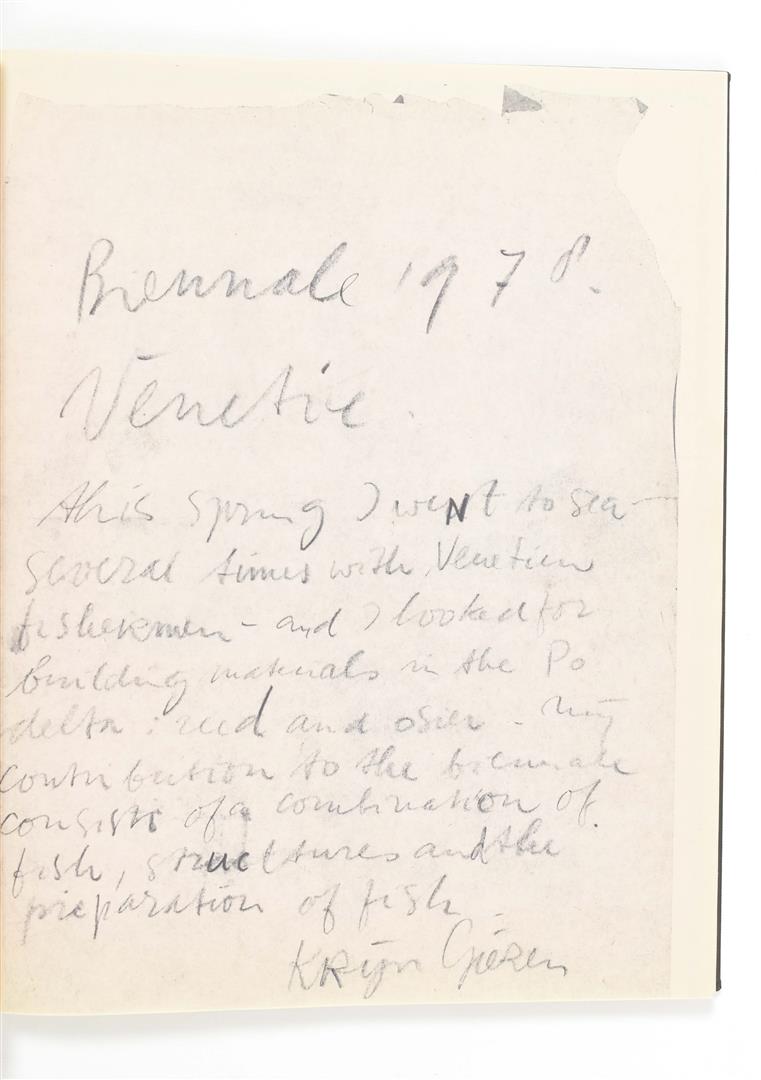 Biennale 1978.
Venetie.
this spring I weNt to sea
several times with Venetien
fishermen - and I looked for
building materials in the Po
delta : reed and osier - my
contribution to the biennale
consists of a combination of
fish, structures and the
preparation of fish.
KRijn Giezen